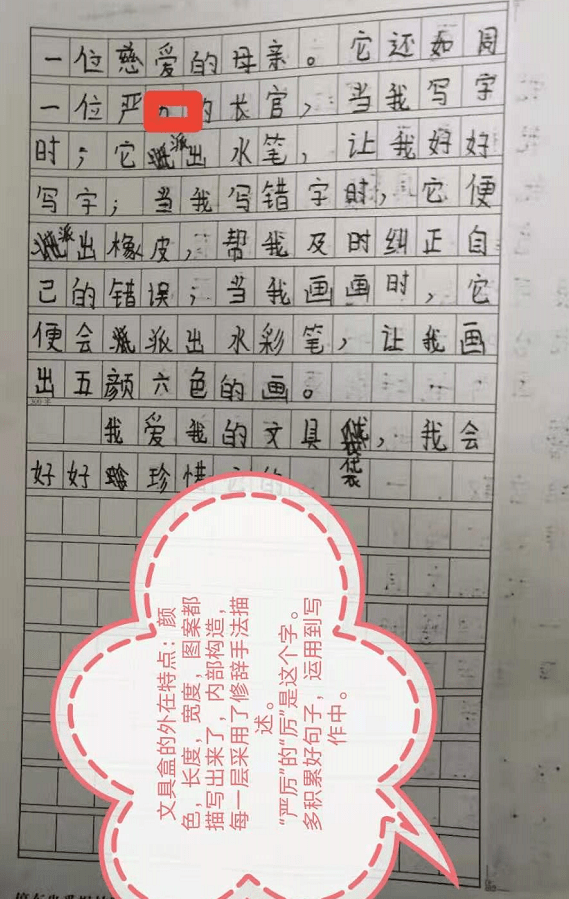 一位慈爱的母亲。它还如同
一位严 的长官，当我写字
时；它派出水笔，让我好好
写字；当我写错字时，它便
派出橡皮，帮我及时纠正自
己的错误；当我画画时，它
便会派出水彩笔，让我画
出五颜六色的画。
300字
我爱我的文具袋，我会
好好珍惜
文具盒的外在特点：颜
色，长度，宽度，图案都
描写出来了，内部构造，
每一层采用了修辞手法描
述。
“严厉”的“厉”是这个字。
多积累好句子，运用到写
作中。